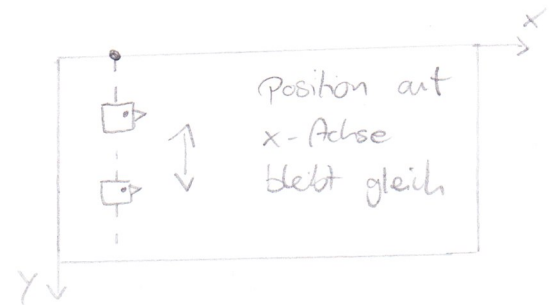 x
Position auf
x-Achse
bleibt gleich
y